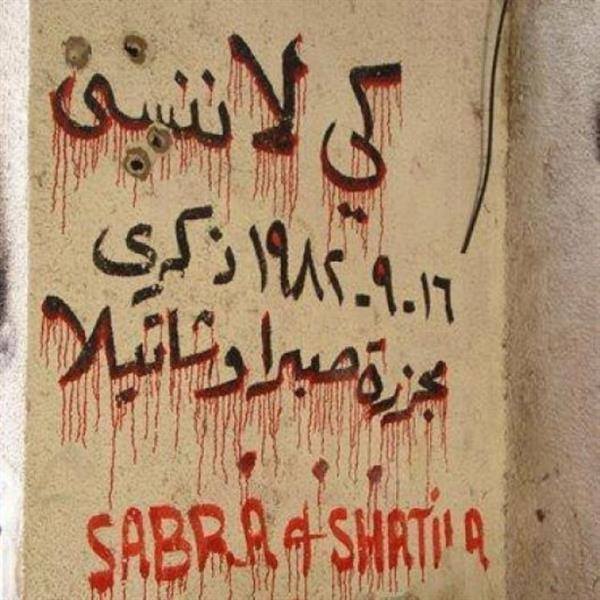 كي لا ننسى
١٦-٩-١٩٨٢ ذكرى
مجزرة صبرا وشاتيلا
SABRA & SHATILA